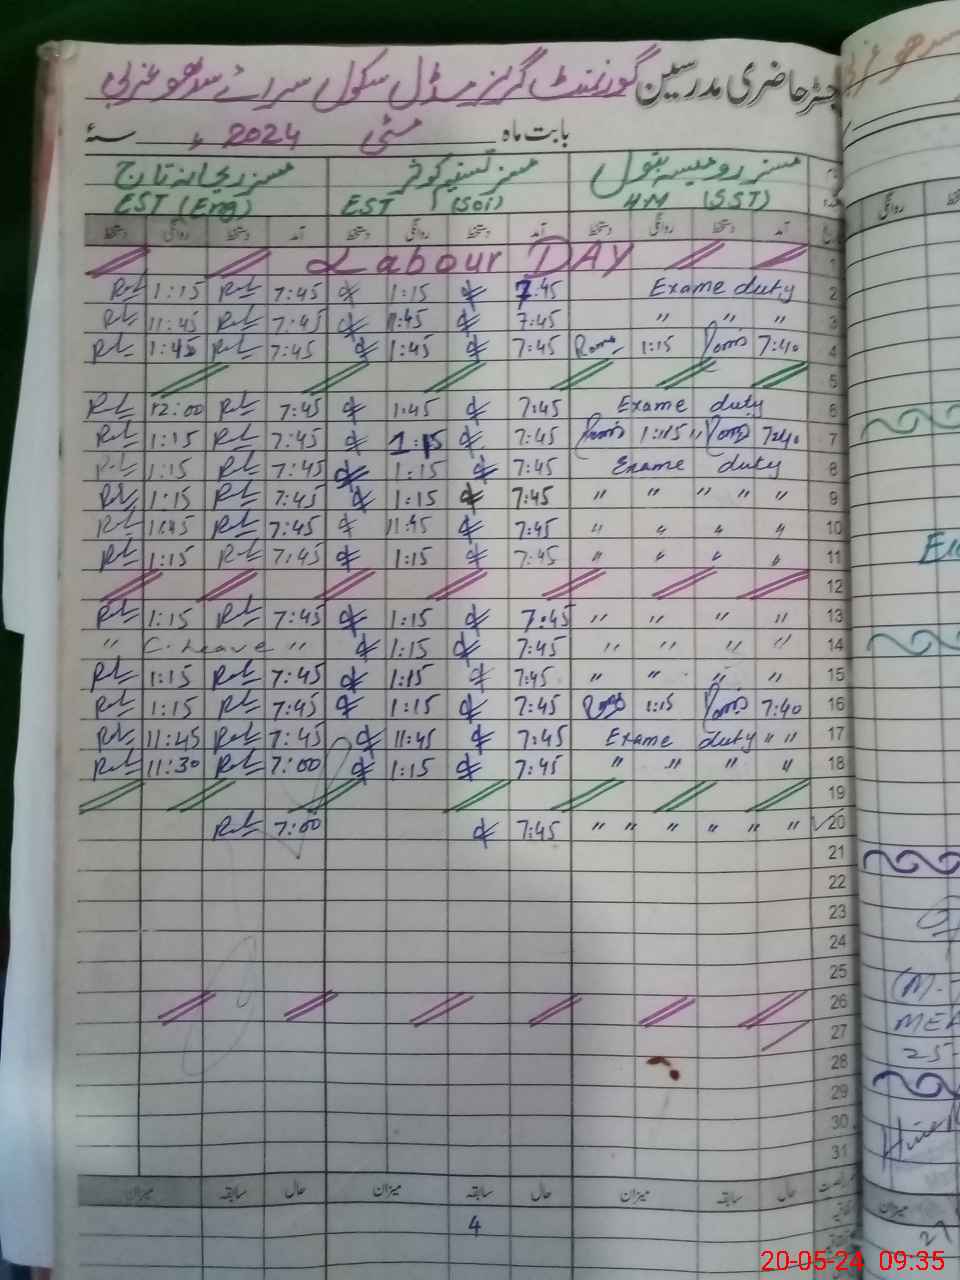 رجسٹر حاضری مدرسین گورنمنٹ گرلز مڈل سکول سرائے سدھو غربی
بابت ماہ مئی 2024ء سنہ
مسز رومیسہ بتول مسز تسنیم کوثر مسز ریحانہ تاج
HM (SST) EST (Sci) EST (Eng)
آمد دستخط روانگی دستخط آمد دستخط روانگی دستخط آمد دستخط روانگی دستخط
Labour DAY 1
1:15 7:45 1:15 7:45 Exame duty 2
11:45 7:45 11:45 7:45 " " " 3
1:45 7:45 1:45 7:45 1:15 7:40 4
5
12:00 7:45 1:45 7:45 Exame duty 6
1:15 7:45 1:15 7:45 1:15 " 7:40 7
1:15 7:45 1:15 7:45 Exame duty 8
1:15 7:45 1:15 7:45 " " " " " 9
11:45 7:45 11:45 7:45 " " " " 10
1:15 7:45 1:15 7:45 " " " " 11
12
1:15 7:45 1:15 7:45 " " " " 13
" C. Leave " 1:15 7:45 " " " " 14
1:15 7:45 1:15 7:45 " " " " 15
1:15 7:45 1:15 7:45 1:15 7:40 16
11:45 7:45 11:45 7:45 Exame duty " " 17
11:30 7:00 1:15 7:45 " " " " 18
19
7:00 7:45 " " " " " " 20
21
22
23
24
25
26
27
28
29
30
31
حال سابقہ میزان حال سابقہ میزان حال سابقہ میزان
4
20-05-24 09:35